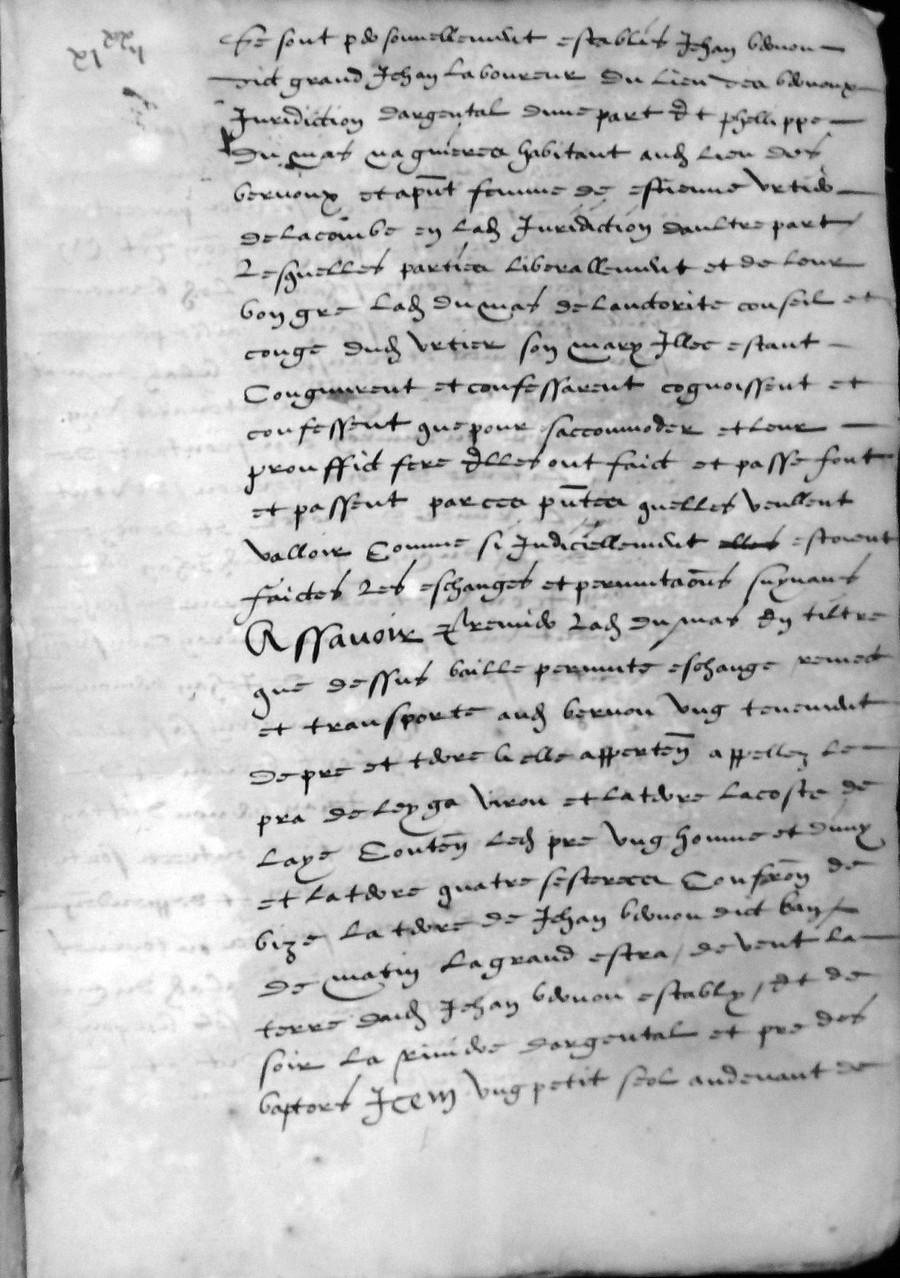 Se sont personnellement establis Jehan bernou
dict grand Jehan laboureur du lieu des bernoux
Juridiction dargental dune part Et phellippe
du mas naguieres habitant aud lieu des
bernoux et apnt femme de estienne Urtier
de lacombe en lad Juridiction daultre part
Lesquelles parties liberallement et de leur
bon gre lad du mas de lauctorite conseil et
conge dud Urtier son mary Illec estant
Congnurent et confessarent cognoissent et
confessent que pour saccommoder et leur
prouffict fere Elles ont faict et passe font
et passent par ces pntes quelles veullent
valloir Comme si Judiciellement estoient
faictes les eschanges et permutaons suyvans
Assavoir premier lad du mas En tiltre
que dessus baille permute eschange remect
et transporte aud bernou Ung tenement
de pre et terre a elle apperten appellez le
pra de leyga viron et la terre lacoste de
laye Conten led pre Ung homme et dimy
et la terre quatre sesterees Confron de
bize la terre de Jehan bernou dict
de matin la grand estra, de vent la
terre dud Jehan bernou estably, Et de
soir la riviere dargental et pre des
baptors Item Ung petit seol audevant de